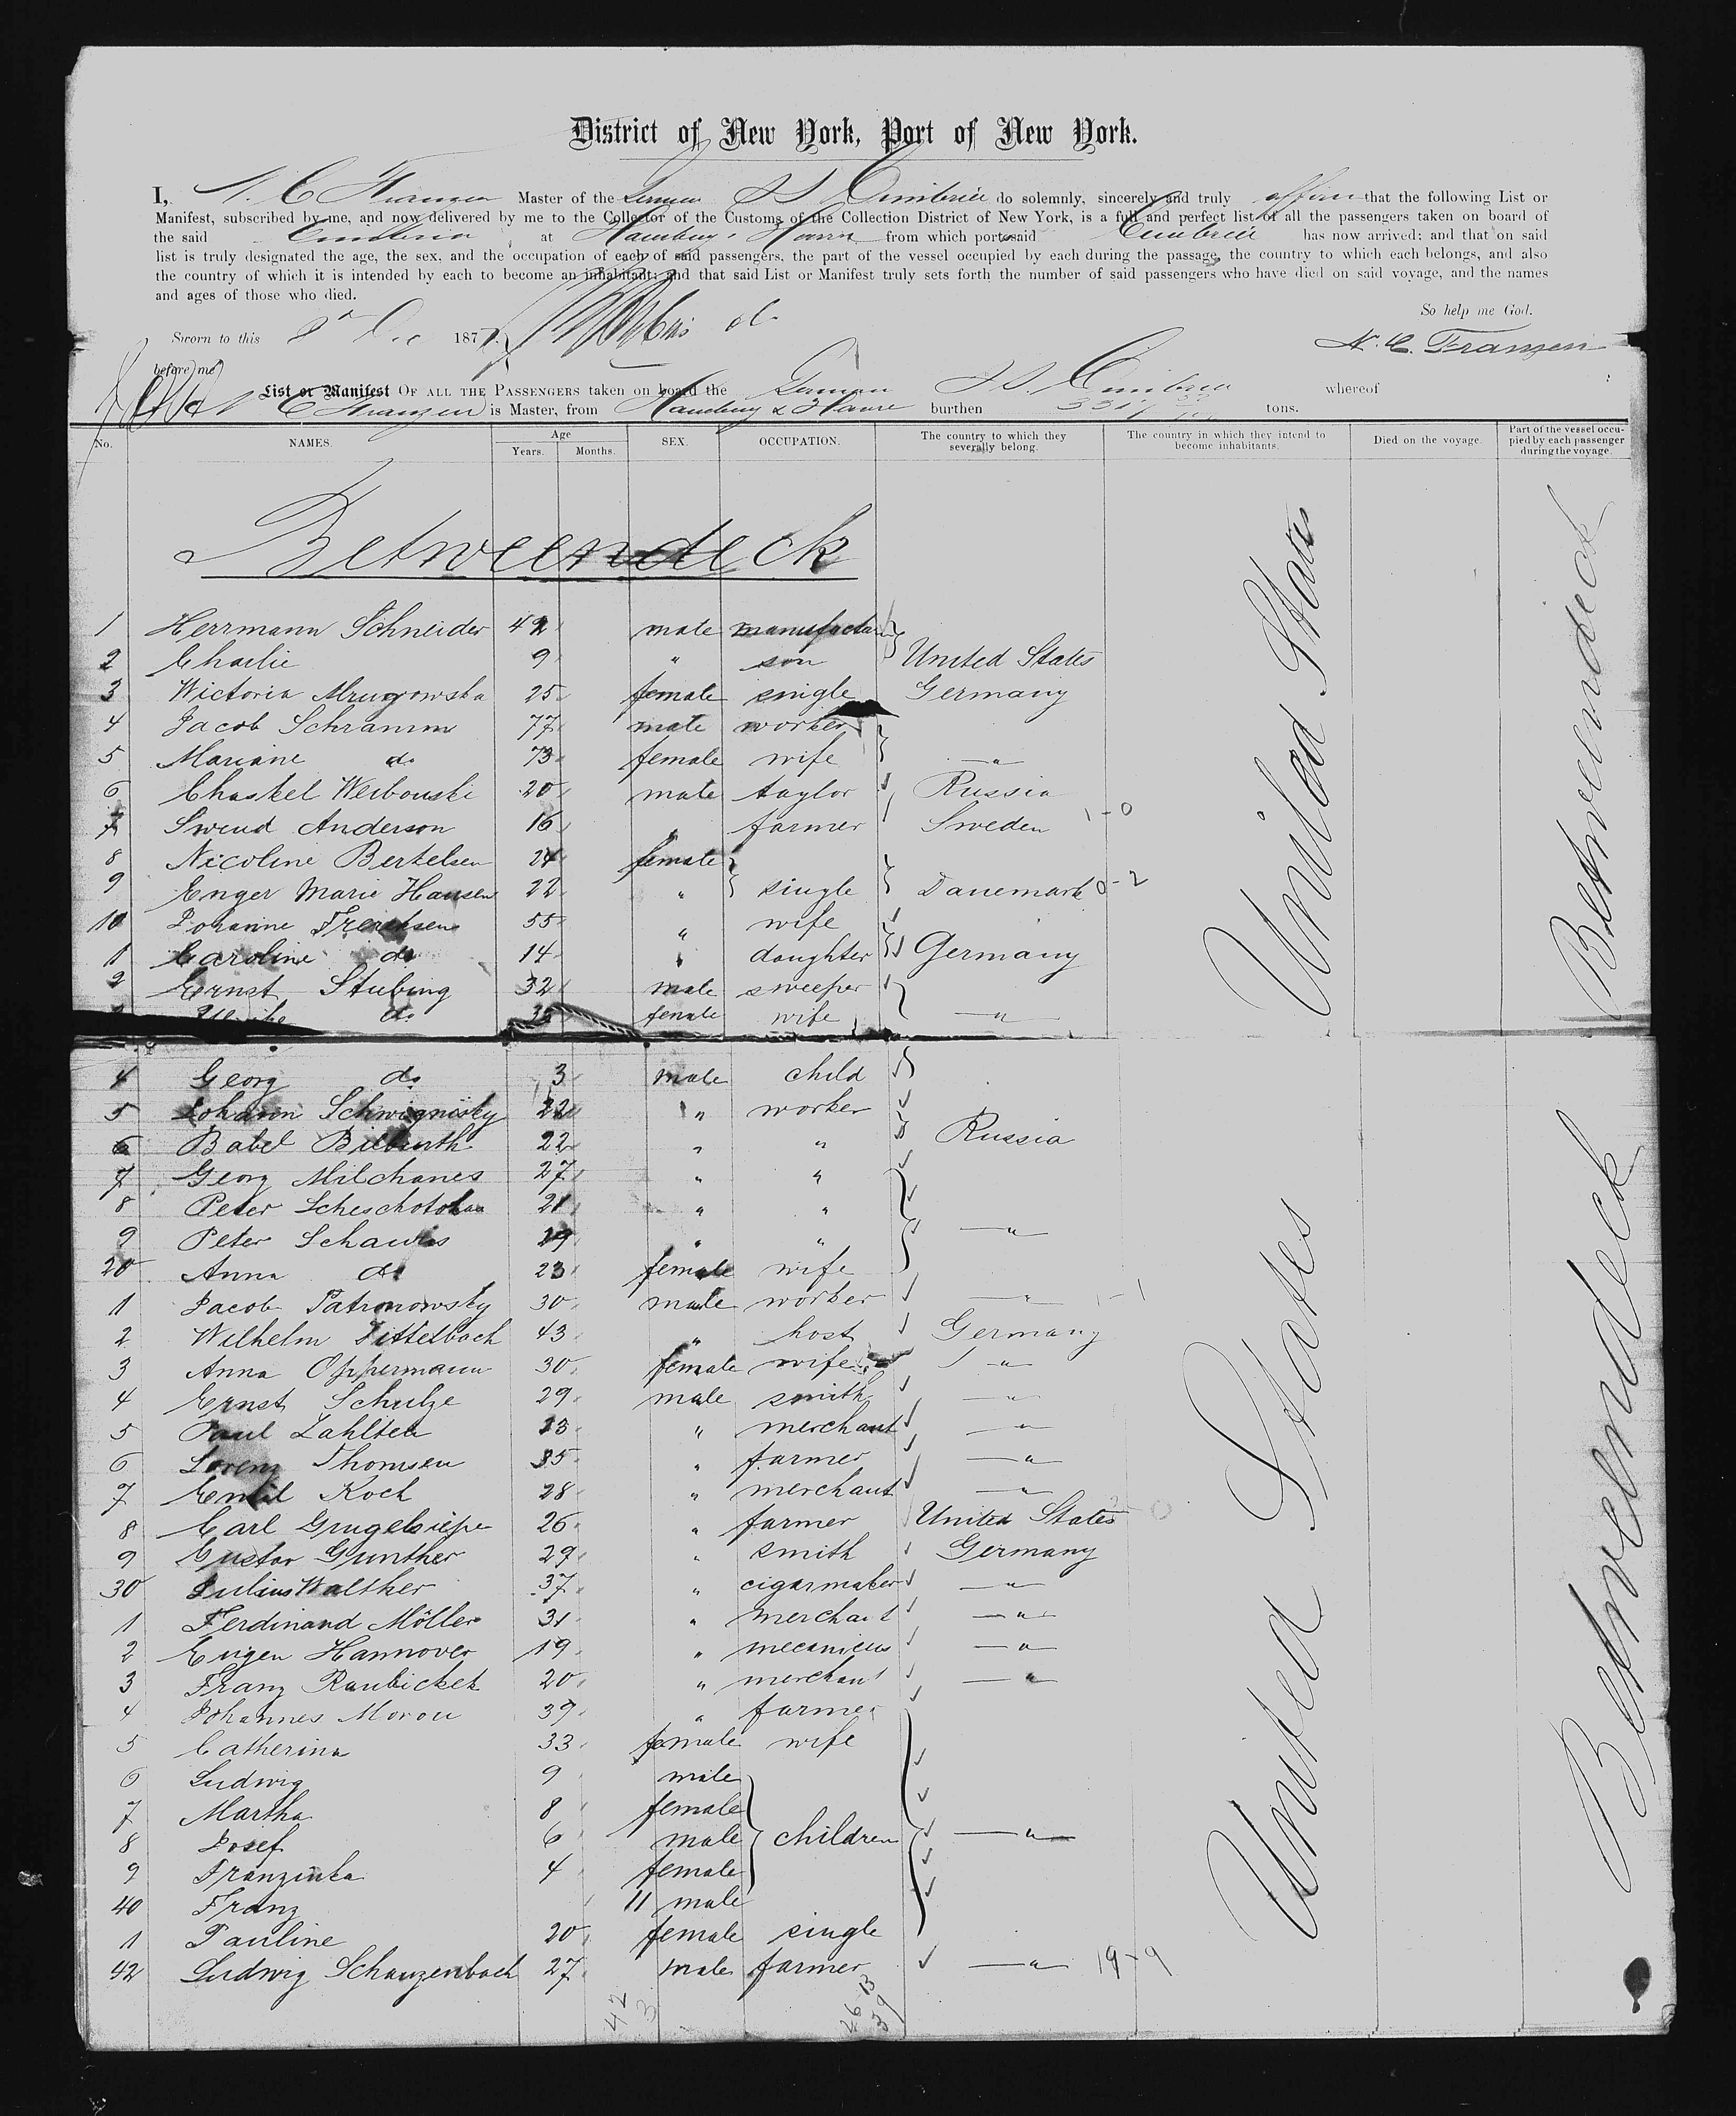 District of New York, Port of New York.
I, N. C Franzen Master of the German S S Cimbria do solemnly, sincerely and truly affirm that the following List or
Manifest, subscribed by me, and now delivered by me to the Collector of the Customs of the Collection District of New York, is a full and perfect list of all the passengers taken on board of
the said Cimbria at Hamburg & Havre from which port said Cimbria has now arrived; and that on said
list is truly designated the age, the sex, and the occupation of each of said passengers, the part of the vessel occupied by each during the passage, the country to which each belongs, and also
the country of which it is intended by each to become an inhabitant; and that said List or Manifest truly sets forth the number of said passengers who have died on said voyage, and the names
and ages of those who died.
So help me God.
Sworn to this 8 Dec 187
N. C. Franzen
before me
List or Manifest OF ALL THE PASSENGERS taken on board the German S S. Cimbria whereof
N C Franzen is Master, from Hamburg & Havre burthen tons.
No. NAMES. Age Years. Months. SEX. OCCUPATION. The country to which they severally belong. The country in which they intend to become inhabitants. Died on the voyage. Part of the vessel occupied by each passenger during the voyage.
Betweendeck
1 Herrmann Schneider 42 male manufactur
2 Charlie 9 " son United States
3 Wictoria Mrugowska 25 female single Germany
4 Jacob Schramm 77 male worker
5 Mariane do 73 female wife "
6 Chaskel Werbouski 20 male taylor Russia
7 Swend Anderson 16 " farmer Sweden 1-0
8 Nicoline Bertelsen 24 female
9 Enger Marie Hansen 22 " single Danemark 0-2
10 Johanne Frerksen 55 " wife
1 Caroline do 14 " daughter Germany
2 Ernst Stubing 32 male sweeper
do 35 female wife "
4 Georg do 3 male child
5 Johann Schwignisky 22 " worker
6 Babel Bilbinth 22 " " Russia
7 Georg Milchanes 27 " "
8 Peter Scheschotokaa 21 " "
9 Peter Schawis 29 " " "
20 Anna do 23 female wife
1 Jacob Patronowsky 30 male worker " 1-1
2 Wilhelm Dittelbach 43 " host Germany
3 Anna Oppermann 30 female wife "
4 Ernst Schulze 29 male smith "
5 Paul Zahlten 23 " merchant "
6 Lorenz Thomsen 35 " farmer "
7 Emil Koch 28 " merchant "
8 Carl Grugelsiepe 26 " farmer United States
9 Gustav Gunther 29 " smith Germany
30 Julius Walther 37 " cigarmaker "
1 Ferdinand Möller 31 " merchant "
2 Eugen Hannover 19 " mecanicus "
3 Franz Raubickek 20 " merchant "
4 Johannes Morou 39 " farmer
5 Catherina 33 female wife
6 Ludwig 9 male
7 Martha 8 female
8 Josef 6 male children "
9 Franziska 4 female
40 Franz 11 male
1 Pauline 20 female single
42 Ludwig Schanzenbach 27 male farmer " 19-9
42
3
26 13
39
United States
United States
Betweendeck
Betweendeck